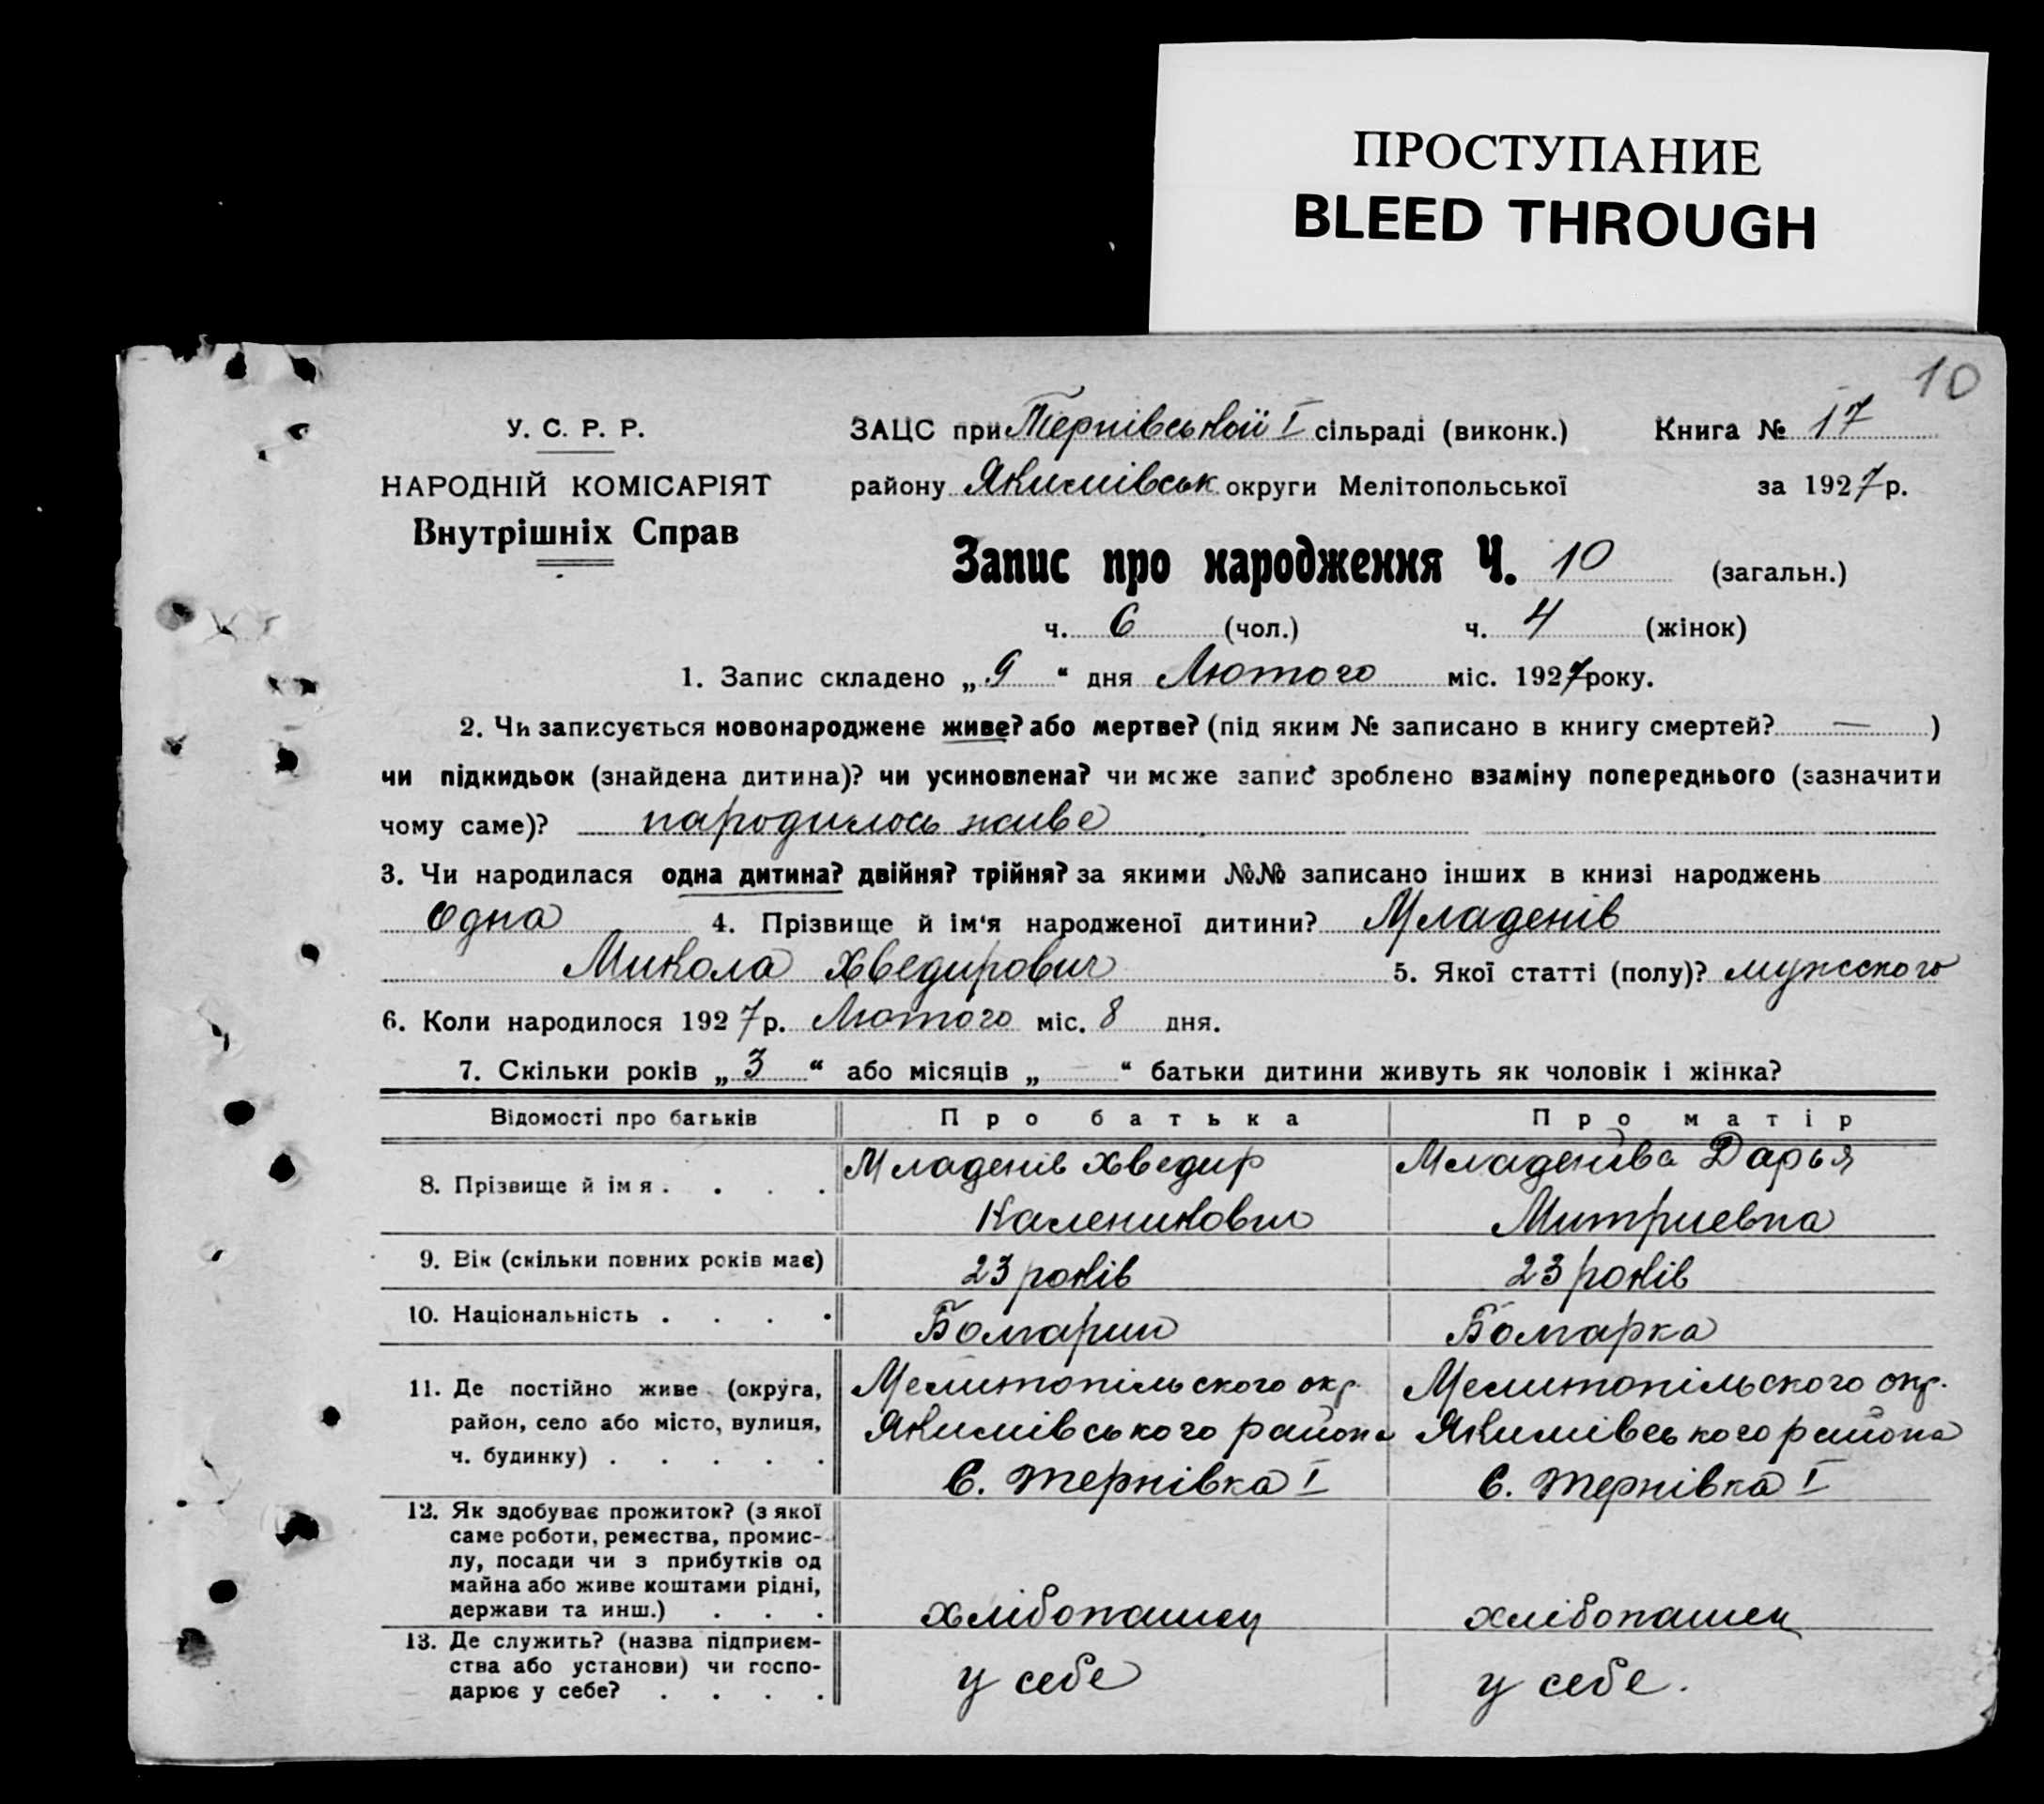 ПРОСТУПАНИЕ
BLEED THROUGH
10
У. С. Р. Р.
НАРОДНІЙ КОМІСАРІЯТ
Внутрішніх Справ
ЗАЦС при Тернівськой І сільраді (виконк.) Книга № 17
району Якимівськ округи Мелітопольської за 1927 р.
Запис про народження Ч. 10 (загальн.)
ч. 6 (чол.) ч. 4 (жінок)
1. Запис складено „ 9 “ дня Лютого міс. 1927 року.
2. Чи записується новонароджене живе? або мертве? (під яким № записано в книгу смертей? — )
чи підкидьок (знайдена дитина)? чи усиновлена? чи може запис зроблено взаміну попереднього (зазначити
чому саме)? народилось живе
3. Чи народилася одна дитина? двійня? трійня? за якими №№ записано інших в книзі народжень
Одна 4. Прізвище й ім‘я народженої дитини? Младенів
Микола Хведирович 5. Якої статті (полу)? мужского
6. Коли народилося 1927 р. Лютого міс. 8 дня.
7. Скільки років „ 3 “ або місяців „ — “ батьки дитини живуть як чоловік і жінка?
Відомості про батьків Про батька Про матір
8. Прізвище й імя . . . . Младенів Хведир Младенива Дарья
Каленикович Митриевна
9. Вік (скільки повних років має) 23 років 23 років
10. Національність . . . . Болгарин Болгарка
11. Де постійно живе (округа, Мелитопільского окр. Мелитопільского окр.
район, село або місто, вулиця, Якимівського района Якимівського района
ч. будинку) . . . . . С. Тернівка І С. Тернівка І
12. Як здобуває прожиток? (з якої
саме роботи, ремества, промис-
лу, посади чи з прибутків од
майна або живе коштами рідні,
держави та инш.) . . . хлібопашец хлібопашец
13. Де служить? (назва підприєм-
ства або установи) чи госпо- у себе у себе.
дарює у себе? . . . .